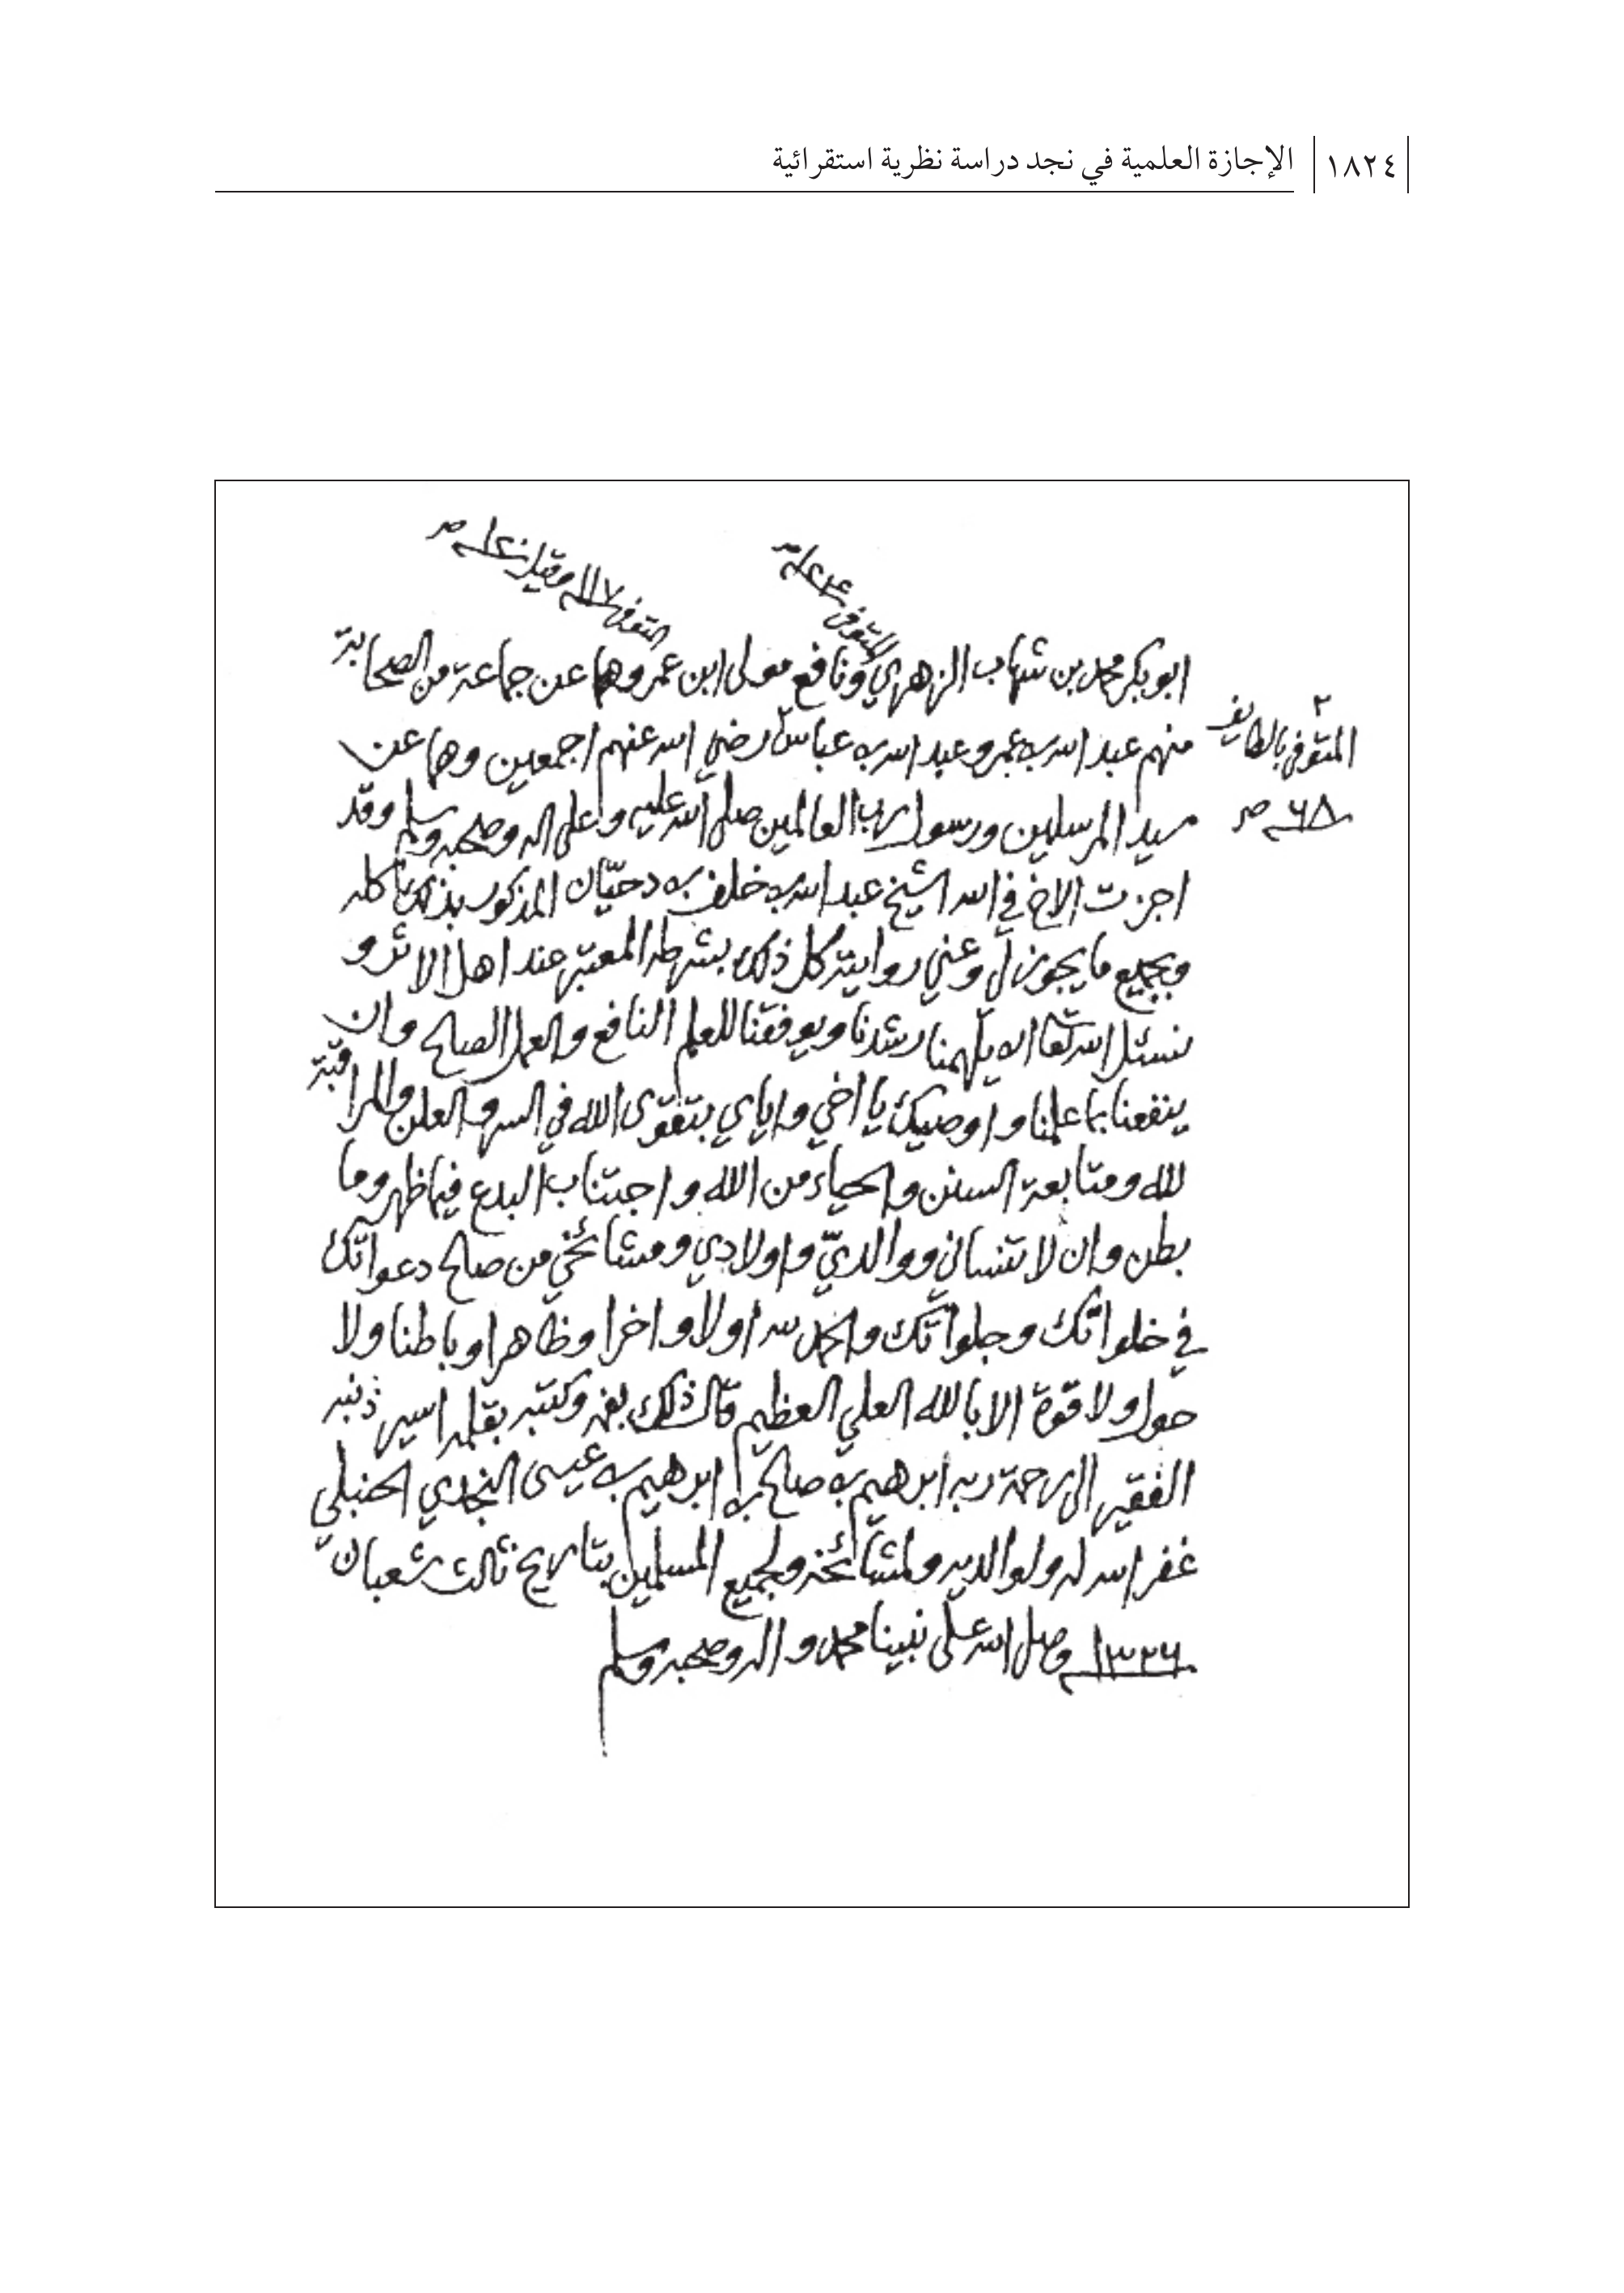 ١٨٢٤ الإجازة العلمية في نجد دراسة نظرية استقرائية
المتوفى سنة ١٢٤
المتوفى ١١٧ وقيل سنة ١٢٠
ابو بكر محمد بن شهاب الزهري ونافع مولى ابن عمر وهما عن جماعة من الصحابة
٢
المتوفى بالطايف
٦٨
منهم عبد الله بن عمر وعبد الله بن عباس رضي الله عنهم اجمعين وهما عن
سيد المرسلين ورسول رب العالمين صلى الله عليه وعلى اله وصحبه وسلم وقد
اجزت الاخ في الله الشيخ عبد الله بن خلف بن دحيّان المذكور بذلك كله
وبجميع ما يجوز لي وعني روايته كل ذلك بشرطه المعتبر عند اهل الاثر و
نسئل الله تعا ان يلهمنا رشدنا ويوفقنا للعلم النافع والعمل الصالح وان
ينفعنا بما علمنا واوصيك يا اخي واياي بتقوى الله في السر والعلن والمراقبة
لله ومتابعة السنن والحياء من الله واجتناب البدع فيما ظهر وما
بطن وان لا تنساني ووالديّ واولادي ومشائخي من صالح دعواتك
في خلواتك وجلواتك والحمد لله اولا واخرا وظاهرا وباطنا ولا
حول ولا قوة الا بالله العلي العظيم قال ذلك بفمه وكتبه بقلمه اسير ذنبه
الفقير الى رحمة ربه ابرهيم بن صالح بن ابرهيم بن عيسى النجدي الحنبلي
غفر الله له ولوالديه ولمشائخه ولجميع المسلمين بتاريخ ثالث شعبان
١٣٢٦ وصلى الله على نبينا محمد واله وصحبه وسلم